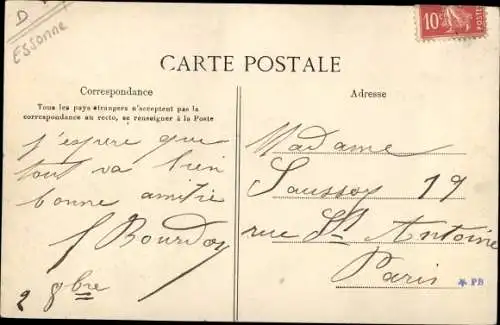 D
Essonne
10c
CARTE POSTALE
Correspondance
Tous les pays étrangers n'acceptent pas la
correspondance au recto, se renseigner à la Poste
j'espère que
tout va bien
bonne amitié
J Bourdon
2 9bre
Adresse
Madame
Saussoy 19
rue St Antoine
Paris
PB